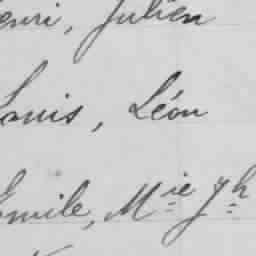 Henri, Julien
Louis, Léon
Emile, M^ie J^h